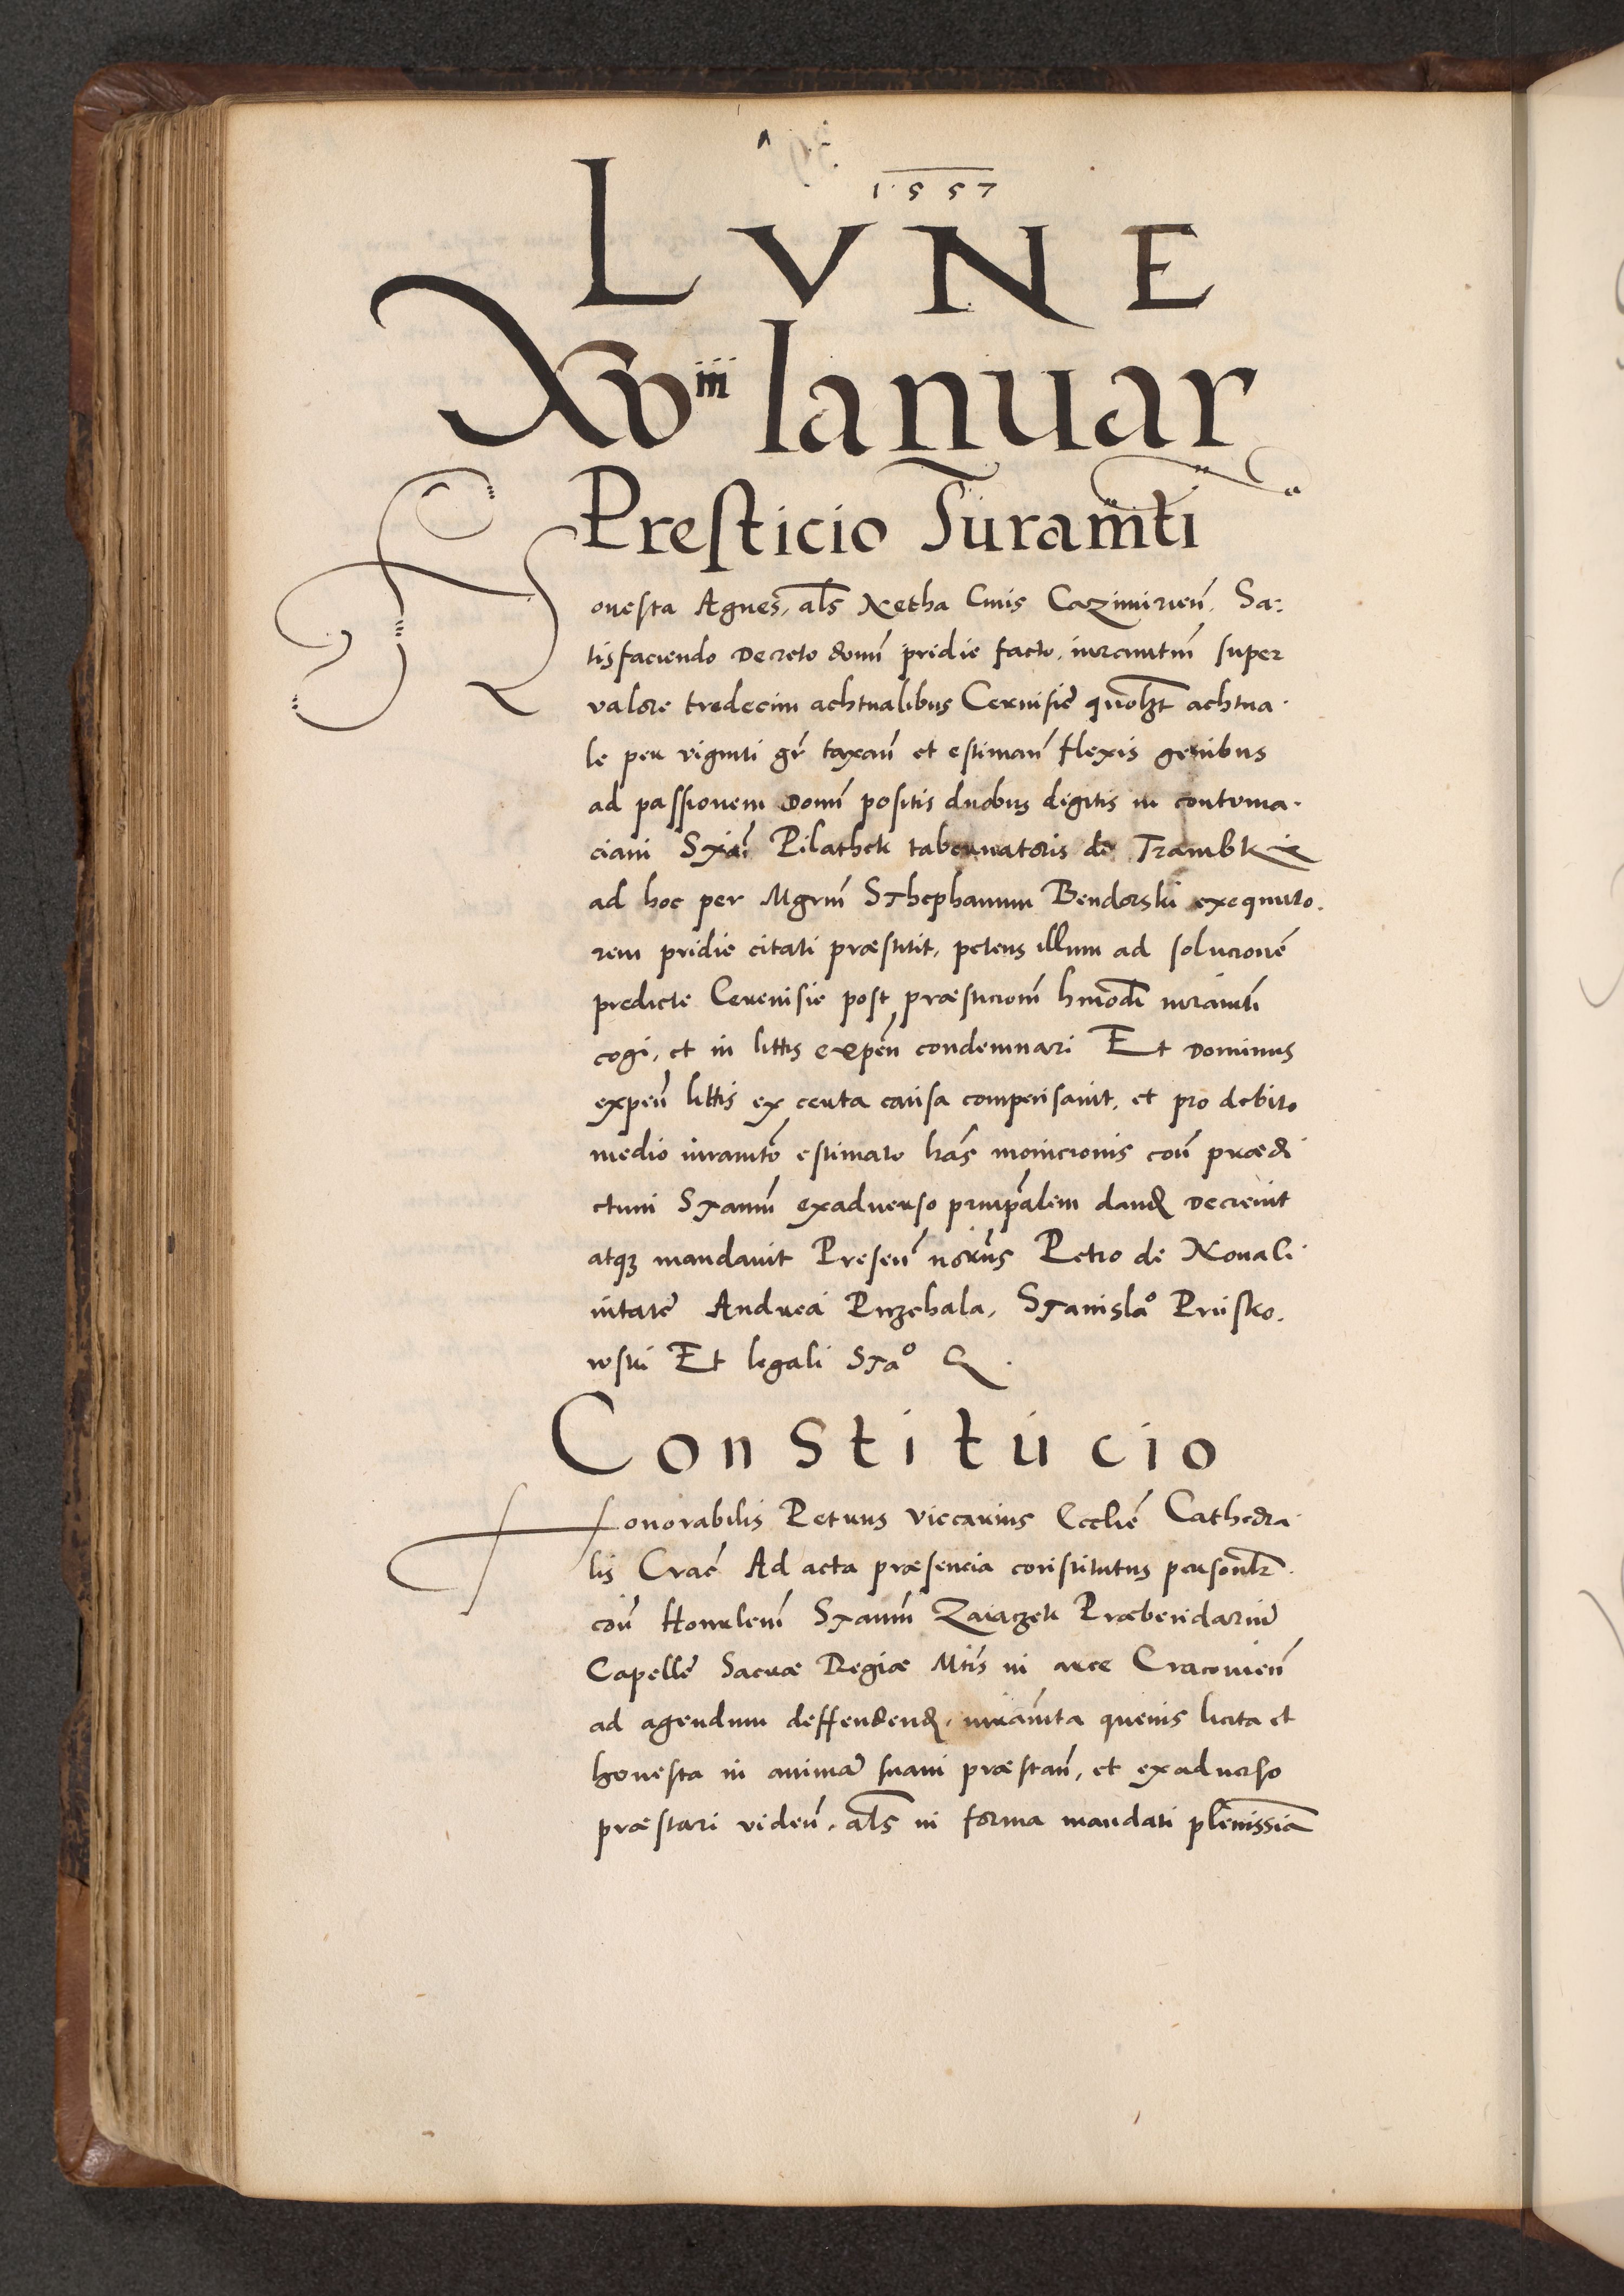 1557
LVNE
Xviii Ianuar
Presticio Iuramti
Honesta Agnes, als Netha Civis Cazimirien̄. Sa:
tisfaciendo Decreto domī pridie facto, iuramtm̄ super
valore tredecim achtualibus Cervisie quoḷt achtua·
le per viginti gr̄ taxan̄ et estiman̄ flexis genibus
ad passionem Domī positis duobus digitis in contuma·
ciam Stai Pilathek tabernatoris de
ad hoc per Mgrm̄ Sthephanum Bendorski exequuto.
rem pridie citati præstitit, petens illum ad solucionē
predicte Cerevisie post præsticionē hmōdi iuramti
cogi, et in littis expen̄ condemnari Et Dominus
expen̄ littis ex certa causa compensavit, et pro debito
medio iuramto estimato lrās monicionis con̄ prædi
ctum Stanm̄ exadverso principalem dand Decrevit
atq mandavit Presen̄ Petro de Novaci
vitate Andrea Przebala, Stanislao Prusko.
wski Et legali Stao
Constitucio
Honorabilis Petrus viccarius Ecclie Cathedra·
lis Crac̄ Ad acta præsencia constitutus personalr
con̄ Honrlem̄ Stanm̄ Zaiaczek Præbendariū
Capelle Sacræ Regiæ Mtis in arce Cracovien̄
ad agendum deffendend, iuramta quevis licita et
honesta in animā suam præstan̄, et exadverso
præstari viden̄, als in forma mandati plenissia